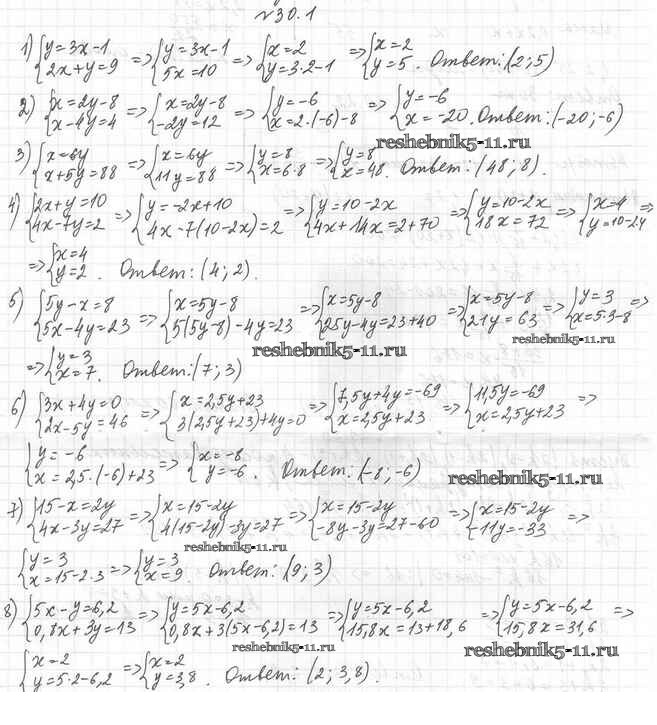 №30.1
1) {y=3x-1 2x+y=9 => {y=3x-1 5x=10 => {x=2 y=3·2-1 => {x=2 y=5. Ответ: (2; 5)
2) {x=2y-8 x-4y=4 => {x=2y-8 -2y=12 => {y=-6 x=2·(-6)-8 => {y=-6 x=-20. Ответ: (-20; -6)
reshebnik5-11.ru
3) {x=6y x+5y=88 => {x=6y 11y=88 => {y=8 x=6·8 => {y=8 x=48. Ответ: (48; 8).
4) {2x+y=10 4x-7y=2 => {y=-2x+10 4x-7(10-2x)=2 => {y=10-2x 4x+14x=2+70 => {y=10-2x 18x=72 => {x=4 y=10-2·4 =>
=> {x=4 y=2. Ответ: (4; 2).
5) {5y-x=8 5x-4y=23 => {x=5y-8 5(5y-8)-4y=23 => {x=5y-8 25y-4y=23+40 => {x=5y-8 21y=63 => {y=3 x=5·3-8 =>
reshebnik5-11.ru
reshebnik5-11.ru
=> {y=3 x=7. Ответ: (7; 3)
6) {3x+4y=0 2x-5y=46 => {x=2,5y+23 3(2,5y+23)+4y=0 => {7,5y+4y=-69 x=2,5y+23 => {11,5y=-69 x=2,5y+23 =>
{y=-6 x=2,5·(-6)+23 => {x=-8 y=-6. Ответ: (-8; -6)
reshebnik5-11.ru
7) {15-x=2y 4x-3y=27 => {x=15-2y 4(15-2y)-3y=27 => {x=15-2y -8y-3y=27-60 => {x=15-2y -11y=-33 =>
reshebnik5-11.ru
{y=3 x=15-2·3 => {y=3 x=9. Ответ: (9; 3)
8) {5x-y=6,2 0,8x+3y=13 => {y=5x-6,2 0,8x+3(5x-6,2)=13 => {y=5x-6,2 15,8x=13+18,6 => {y=5x-6,2 15,8x=31,6 =>
reshebnik5-11.ru
reshebnik5-11.ru
{x=2 y=5·2-6,2 => {x=2 y=3,8. Ответ: (2; 3,8).